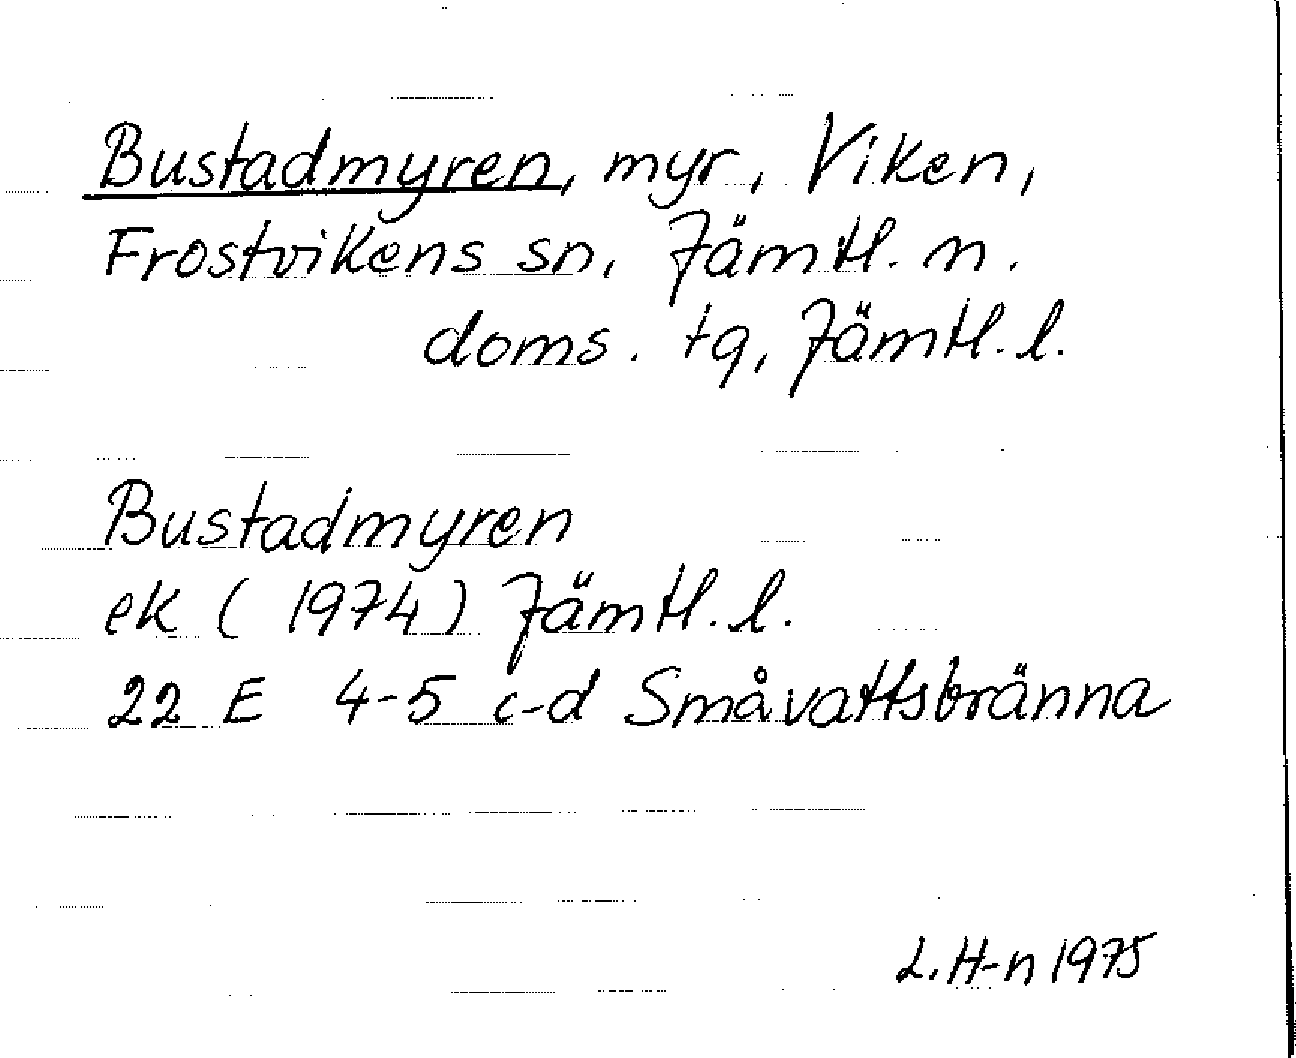 Bustadmyren, myr, Viken,
Frostvikens sn, Jämtl. n.
doms. tg, Jämtl. l.
Bustadmyren
ek (1974) Jämtl. l.
22 E 4-5 c-d Småvattsbränna
L. H-n 1975